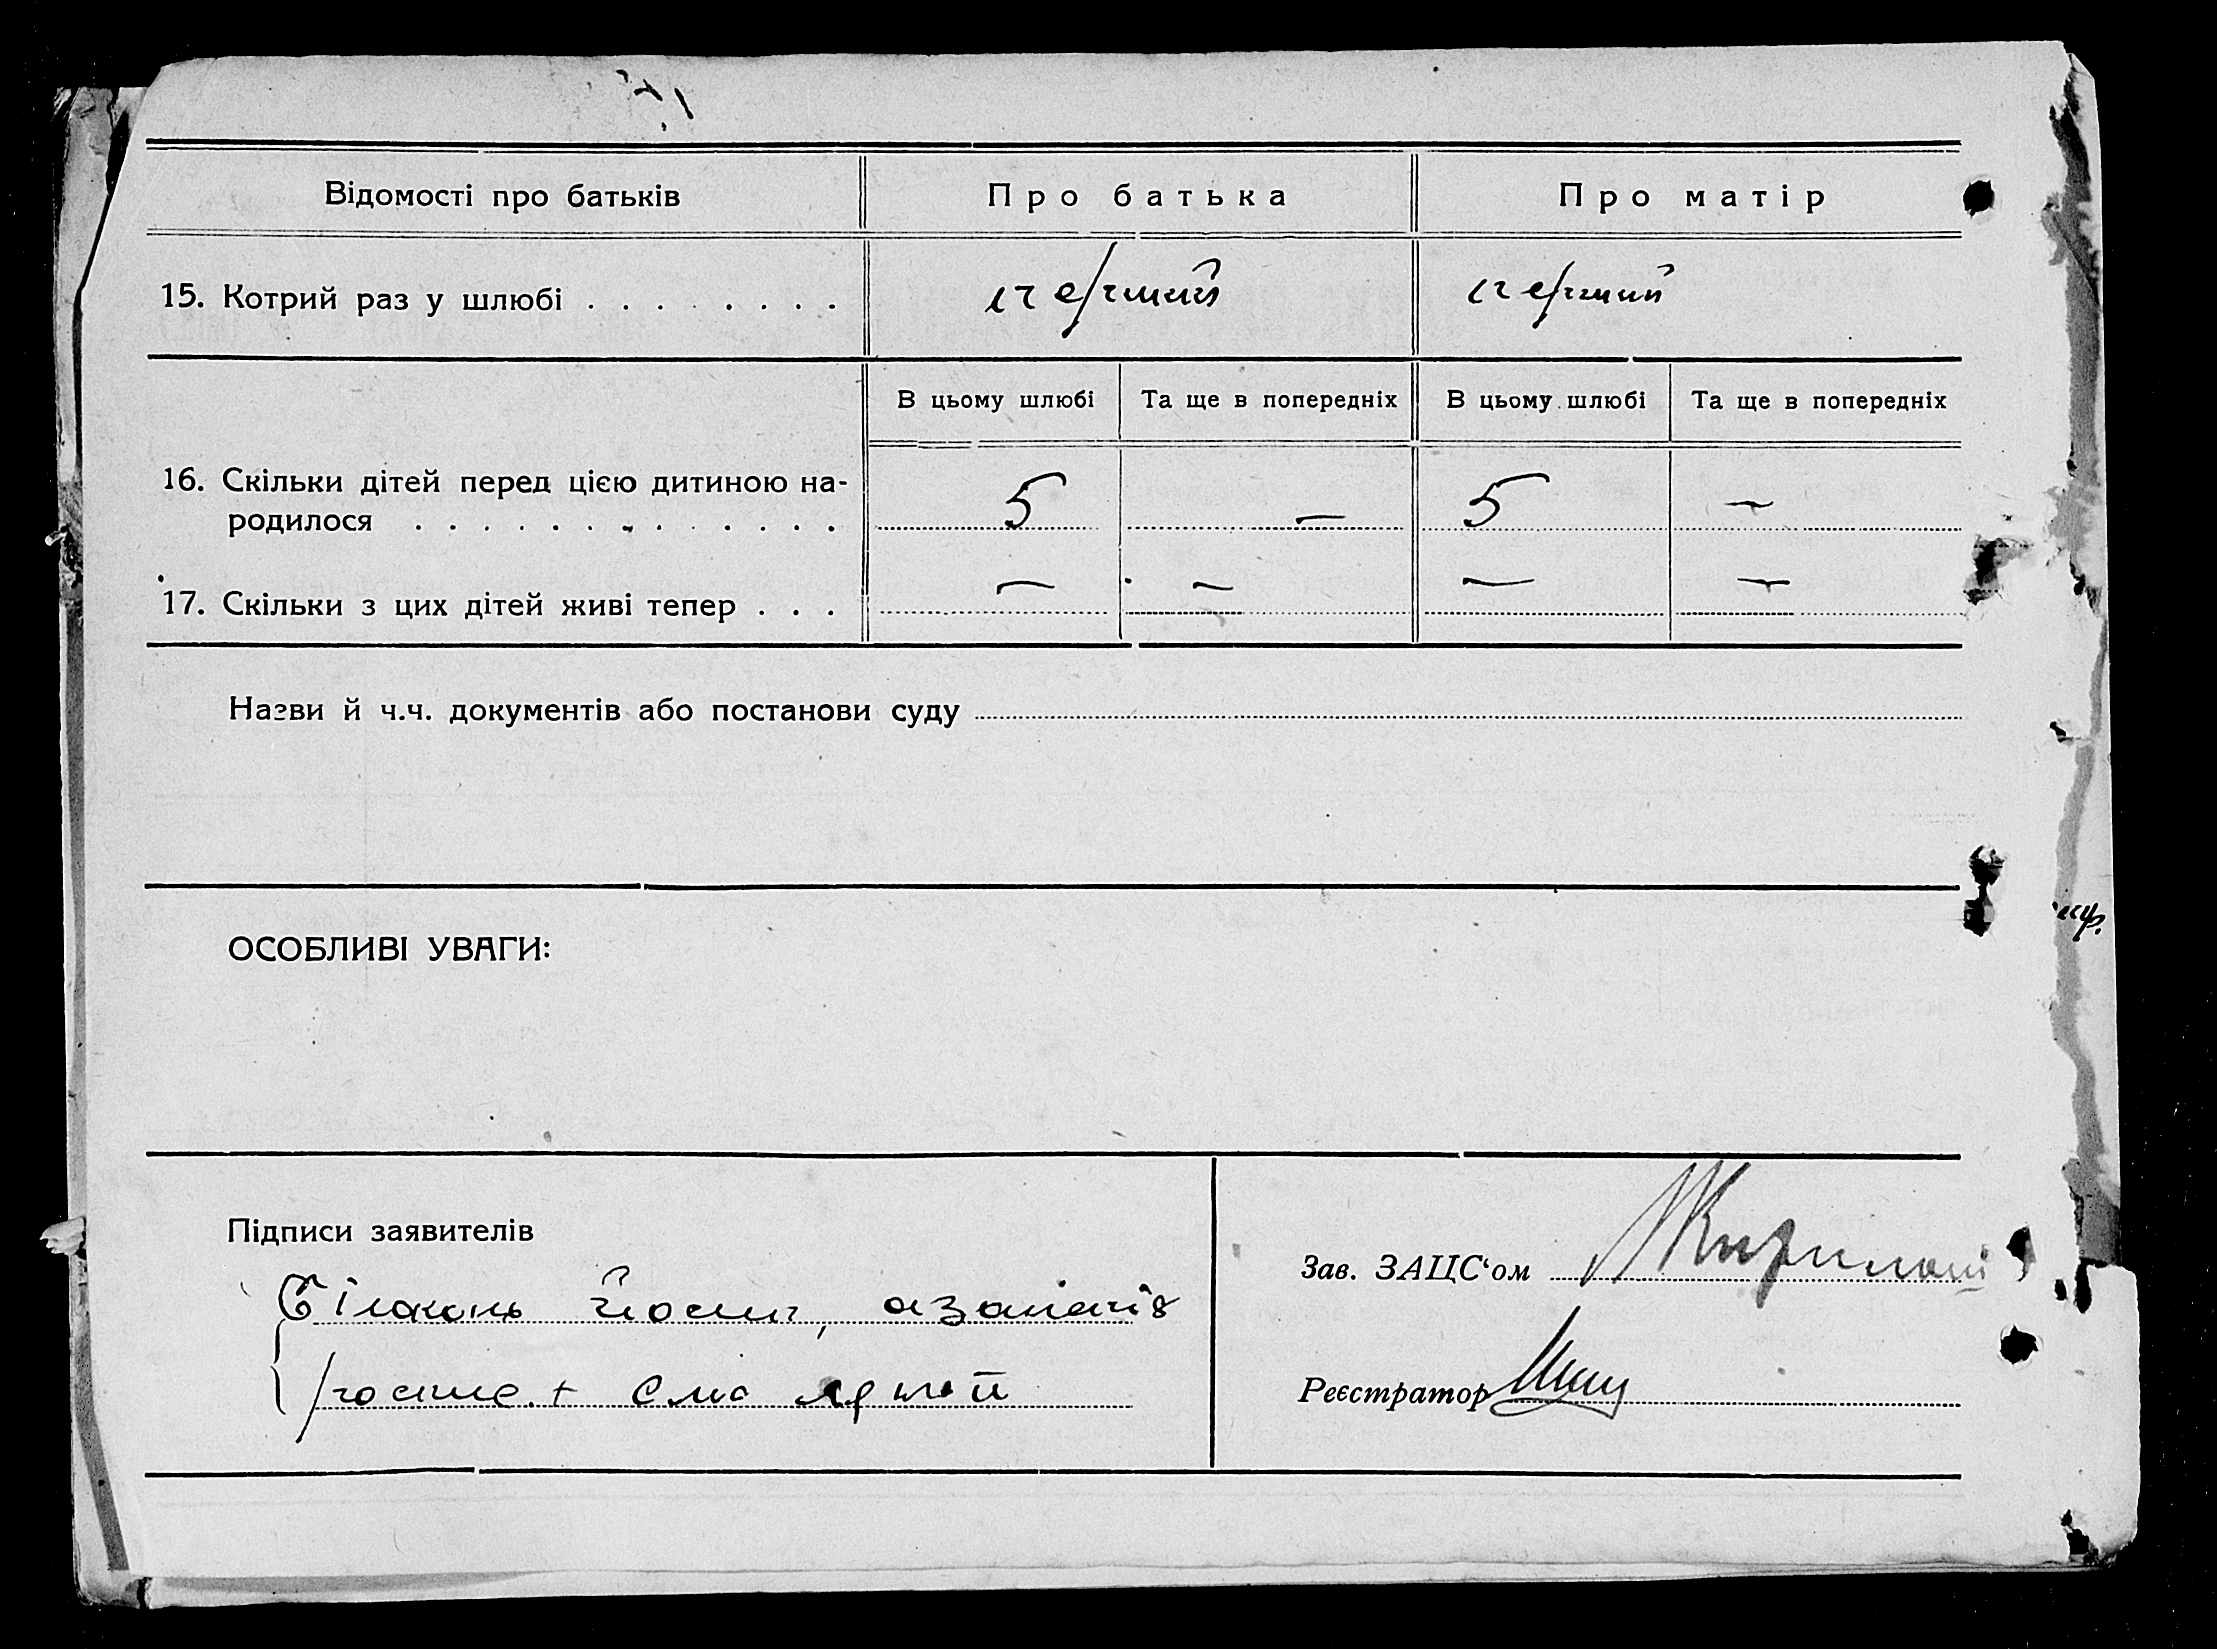 Відомості про батьків Про батька Про матір
15. Котрий раз у шлюбі . . . . . . . . перший перший
В цьому шлюбі Та ще в попередніх В цьому шлюбі Та ще в попередніх
16. Скільки дітей перед цією дитиною на-
родилося . . . . . . . . . . . . . 5 — 5 —
17. Скільки з цих дітей живі тепер . . . — — — —
Назви й ч.ч. документів або постанови суду
ОСОБЛИВІ УВАГИ:
Підписи заявителів
Зав. ЗАЦС‘ом
Білоконь Йосип,
Реєстратор